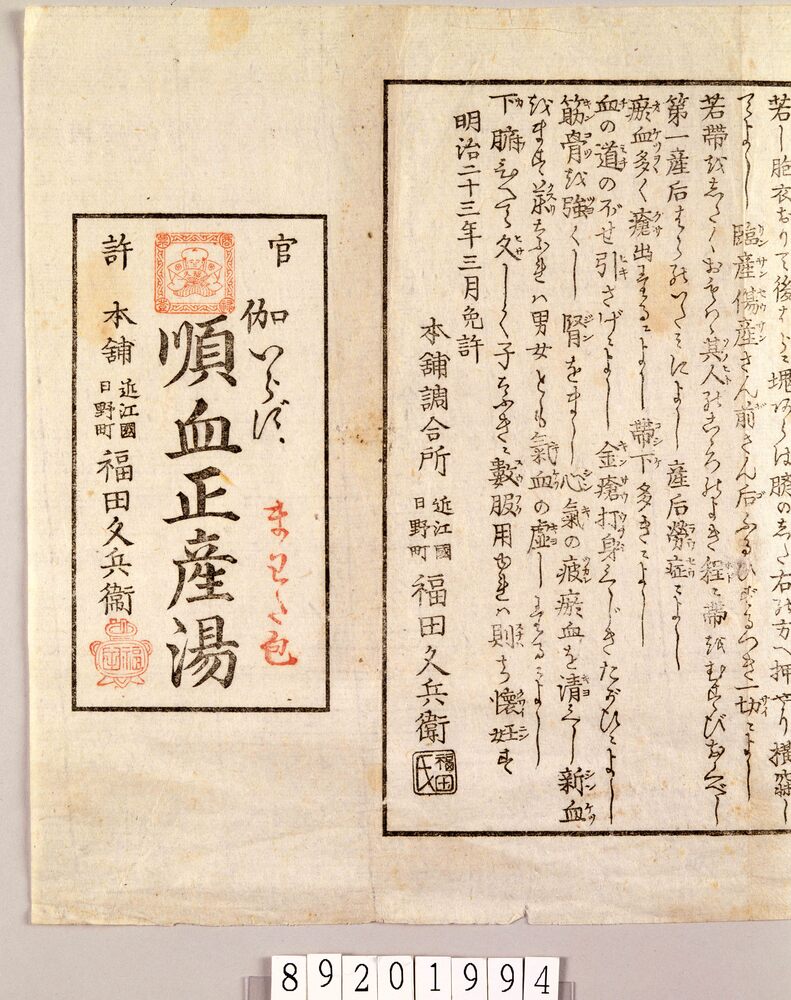 若し胞衣おりて後はらに塊あらは臍のした右の方へ押やり横
てよし 臨産傷産さん前さん后ふるひづるつき一切によし
若帯をしたくおもはゝ其人のこゝろのよき程に帯をむすびおくべし
第一産后はらのいたみによし 産后労症によし
瘀血多く瘡出るによし 帯下多きによし
血の道のぼせ引さげによし 金瘡打身くじきたがひによし
筋骨を強くし腎をまし心氣の疲瘀血を清くし新血
をます薬なれハ男女とも氣血の虚しするによし
下臍ひへて久しく子なきに數服用ゆれハ則ち懐妊す
明治二十三年三月免許
本舗調合所 近江國日野町 福田久兵衞
福田氏
官許
伽いらず
順血正産湯
まわた包
本舗 近江國日野町 福田久兵衞
89201994